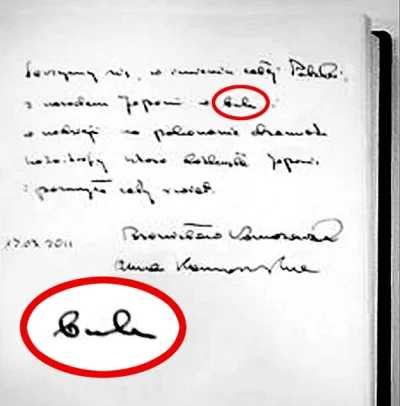 Łączymy się, w imieniu całej Polski,
z narodem Japonii w bulu i
w nadzieji na pokonanie
katastrofy która dotknęła Japonię
i cały świat.
2011 Bronisław Komorowski
Anna Komorowska
bulu